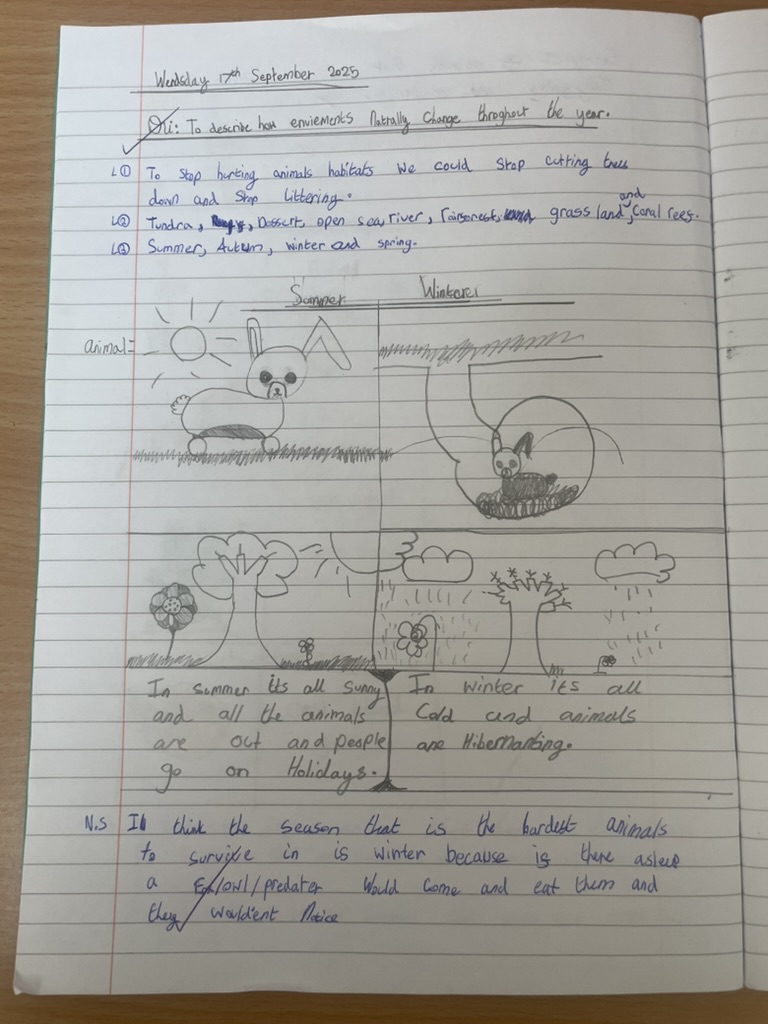 Wendsday 17th September 2025
To describe how enviements Natrally Change throghout the year.
L① To stop hurting animals habitats we could stop cutting trees
down and stop littering.
L② Tundra, Dessert, open sea, river, rainforest, grass land, and Coral rees.
L③ Summer, Autum, winter and spring.
Summer Winter
animal=
In summer its all sunny
and all the animals
are out and people
go on Holidays.
In winter its all
Cold and animals
are Hibernanting.
N.S I think the season that is the hardest animals
to survive in is winter because is there asleep
a /owl/predater Would come and eat them and
they would'ent Notice